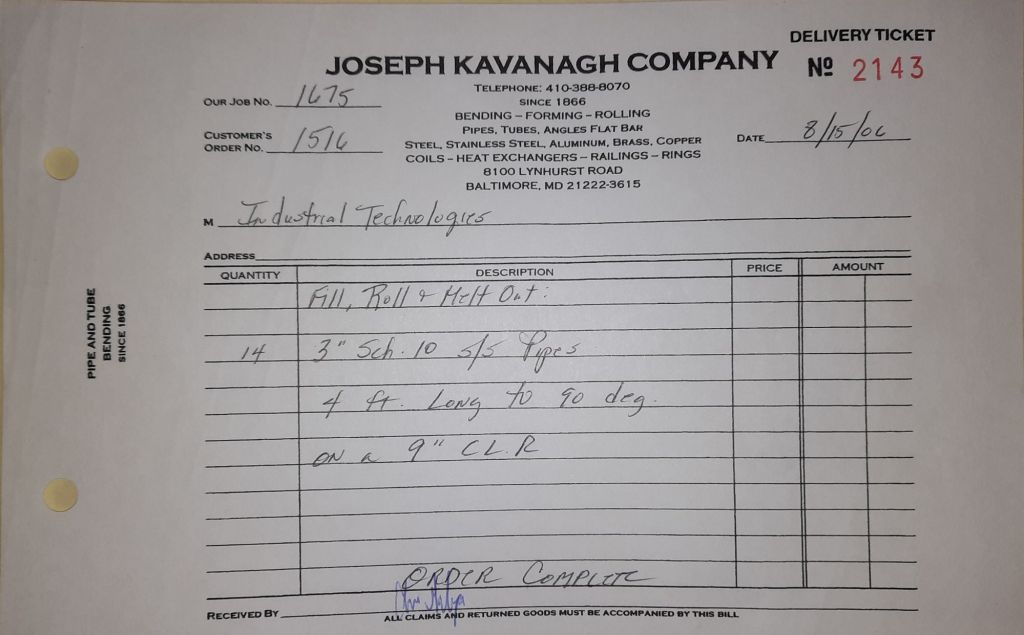 DELIVERY TICKET
JOSEPH KAVANAGH COMPANY
Nº 2143
TELEPHONE: 410-388-8070
SINCE 1866
BENDING – FORMING – ROLLING
PIPES, TUBES, ANGLES FLAT BAR
STEEL, STAINLESS STEEL, ALUMINUM, BRASS, COPPER
COILS – HEAT EXCHANGERS – RAILINGS – RINGS
8100 LYNHURST ROAD
BALTIMORE, MD 21222-3615
OUR JOB NO. 1675
CUSTOMER'S
ORDER NO. 1516
DATE 8/15/06
M Industrial Technologies
ADDRESS
QUANTITY DESCRIPTION PRICE AMOUNT
Fill, Roll & Melt Out:
14 3" Sch. 10 S/S Pipes
4 ft. Long to 90 deg.
on a 9" CLR
ORDER COMPLETE
RECEIVED BY
ALL CLAIMS AND RETURNED GOODS MUST BE ACCOMPANIED BY THIS BILL
PIPE AND TUBE
BENDING
SINCE 1866